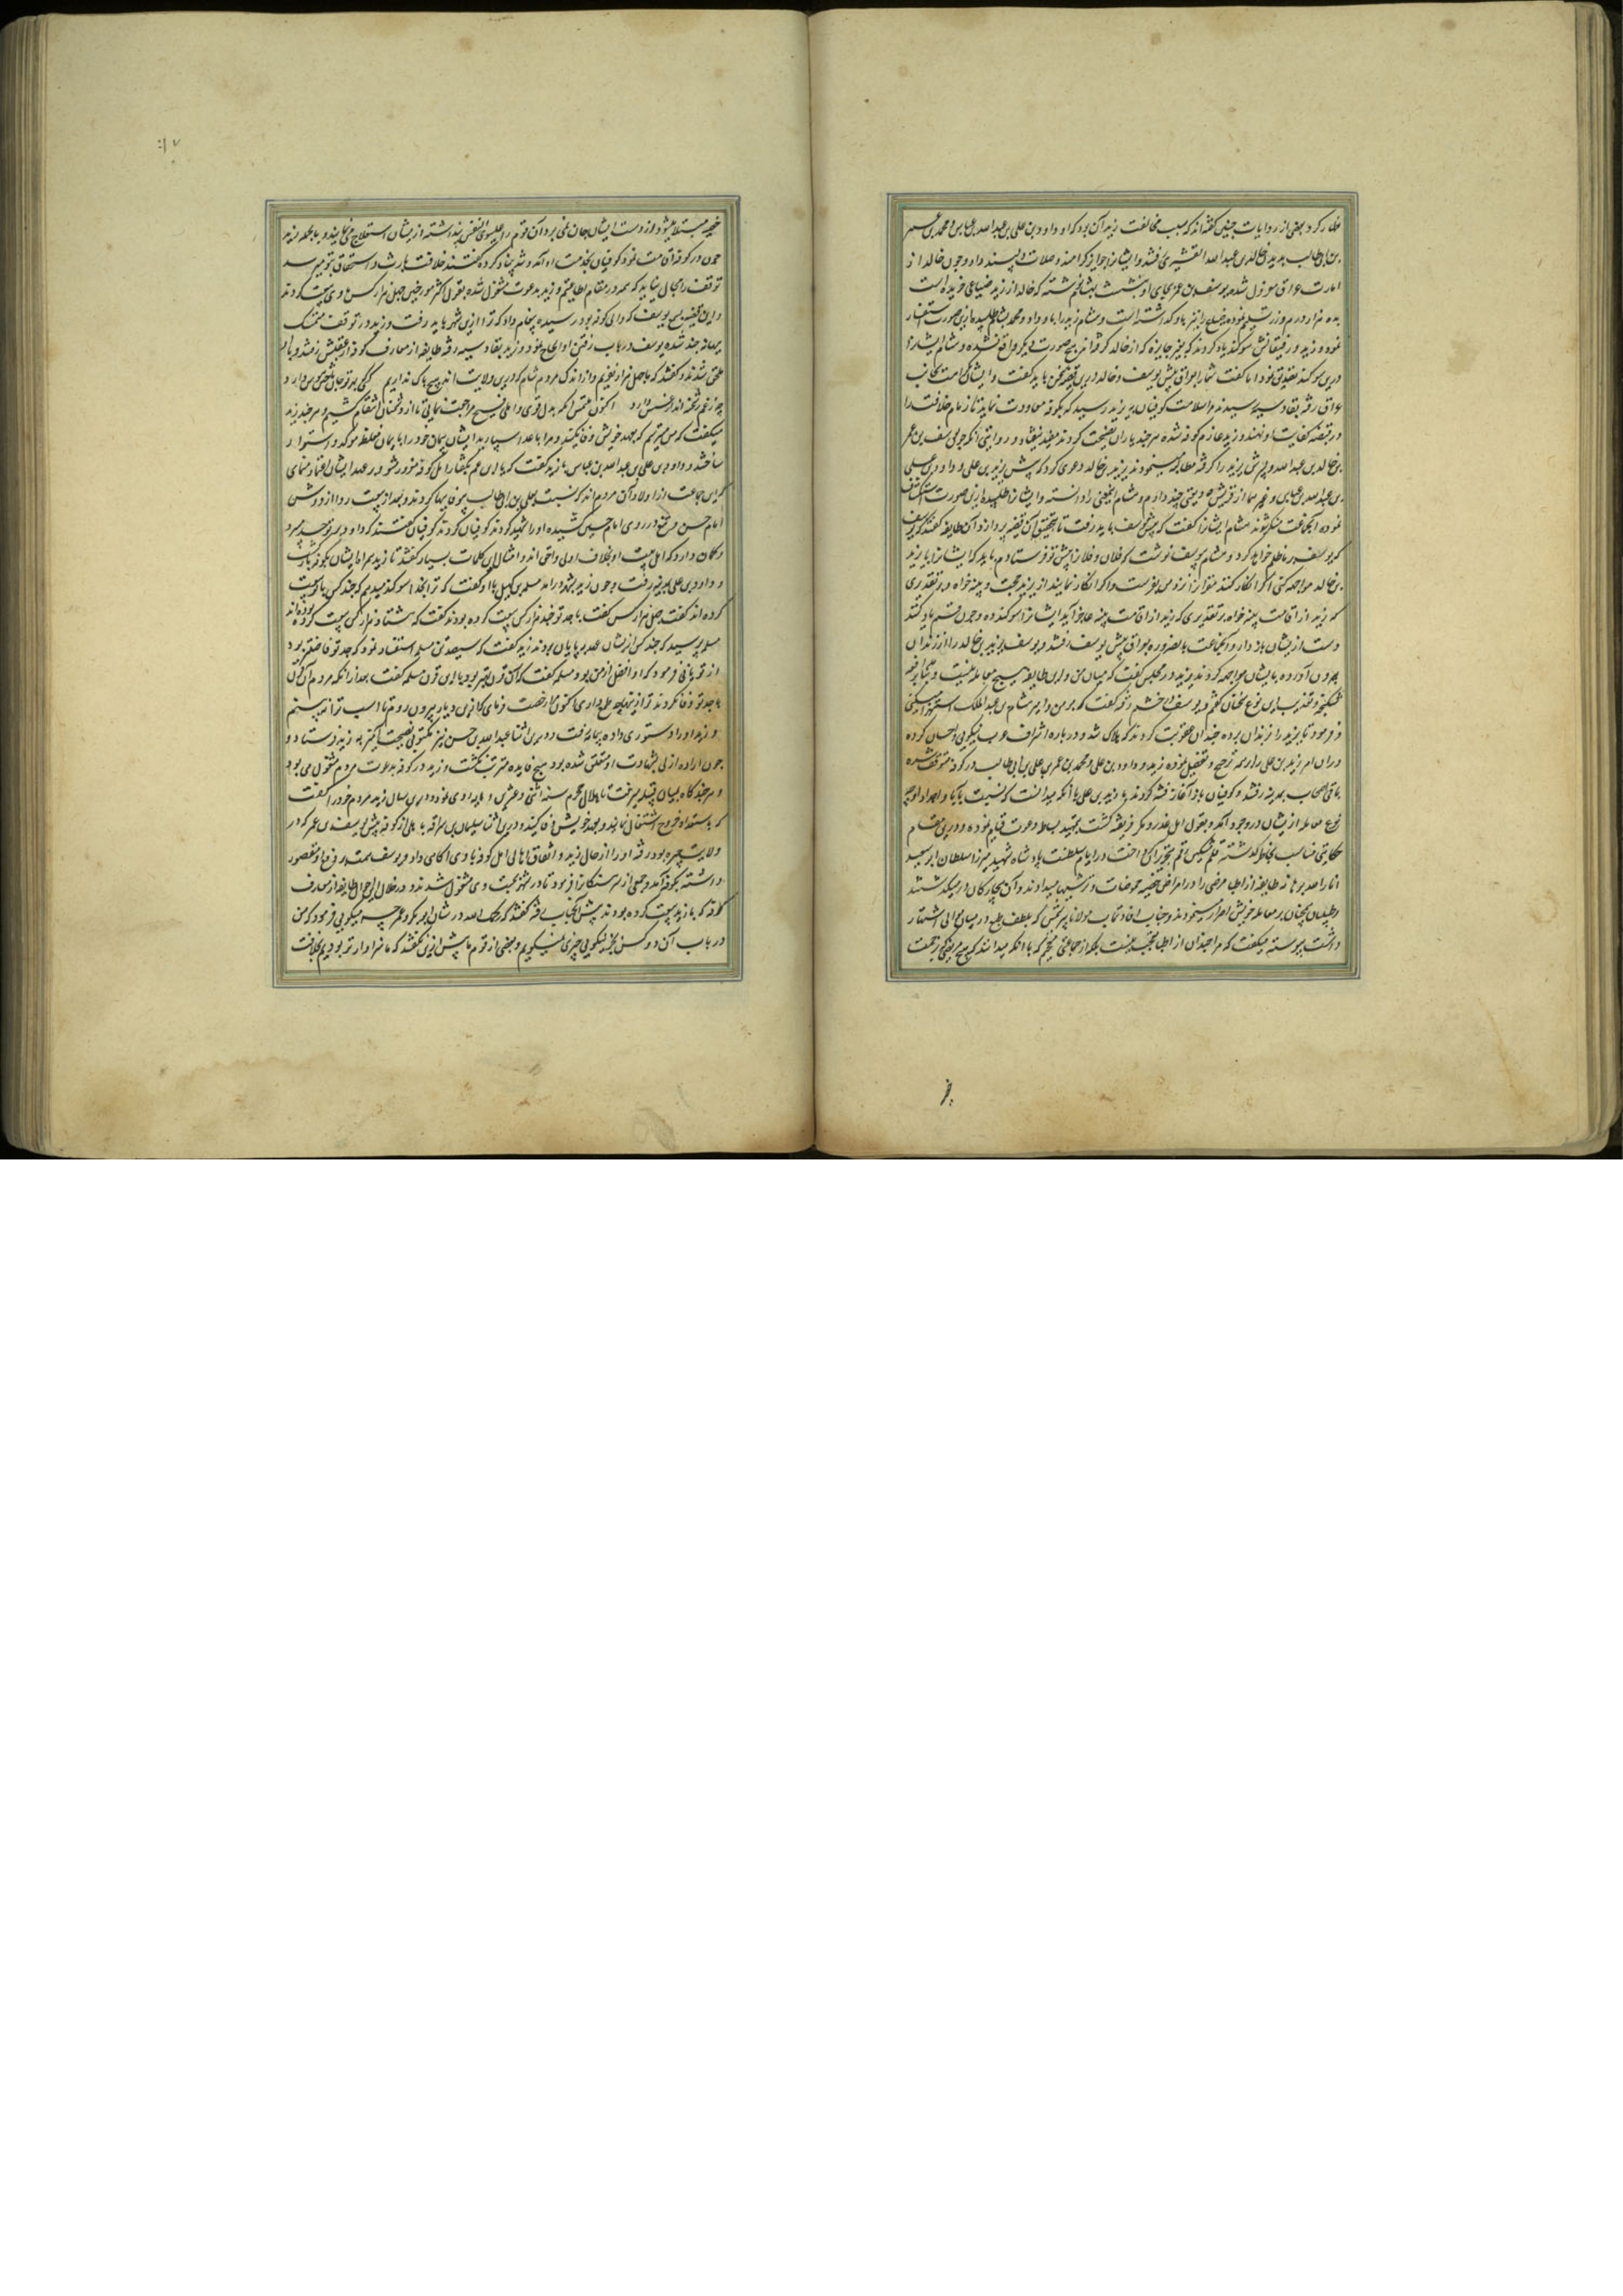 ظاهر کرد بعضی از روایات چنین گفته‌اند که سبب مخالفت زید آن بود که او و داود بن علی بن عبدالله بن عباس و محمد بن عمر
بن علی بن ابی طالب بدیدن خالد بن عبدالله القشیری رفتند و ایشانرا جوایز کرامند و صلات دلپسند داد و چون خالد از
امارت عراق معزول شده یوسف بن عمر بجای او بنشست بهشام نوشته که خالد از زید ضیاعی خریده است
بده هزار درم و زر تسلیم نموده ضیاع را بزید باز گذاشته است و هشام زید را با داود و محمد بشام طلبیده ازین صورت استفسار
نمود و زید و رفیقانش سوگند یاد کردند که بغیر جایزه که از خالد گرفته‌اند هیچ صورت دیگر واقع نشده و هشام ایشانرا
درین سوگند تصدیق نمود اما گفت شما را بعراق پیش یوسف و خالد درین قضیه سخن باید گفت و ایشان کراهت بجانب
عراق رفته بقادسیه رسیدند مراسلات کوفیان به زید رسید که بکوفه معاودت نماید تا زمام خلافت را
در قبضه کفایت او نهند و زید عازم کوفه شده هر چند یاران نصیحت کردند مفید نیفتاد و روایتی آنکه چون یوسف بن عمر
بن خالد بن عبدالله و پسرش یزید را گرفته مطالبه مینمودند یزید بن خالد دعوی کرد که پیش زید بن علی و داود بن علی
بن عبدالله بن عباس و غیرهما از قریش ودیعتی چند دارم و هشام اینمعنی را دانسته و ایشانرا طلبیده ازین صورت استکشاف
نموده آنجماعت منکر شدند هشام ایشانرا گفت که پیش یوسف باید رفت تا بتحقیق آن قضیه پردازد آن طایفه گفتند که یوسف
که یوسف بر ما ظلم خواهد کرد و هشام بیوسف نوشت که فلان و فلانرا پیش تو فرستادم باید که ایشانرا با یزید
بن خالد مواجهه کنی اگر اقرار کنند نزد من بفرست و اگر انکار نمایند از یزید حجت و بینه خواه و بر تقدیری
که یزید از اقامت بینه عاجز آید ایشانرا سوگند ده و چون قسم یاد کنند
دست از ایشان باز دار و آنجماعت بالضروره بعراق پیش یوسف رفتند و یوسف یزید بن خالد را از زندان
بیرون آورده با ایشان مواجهه کردند یزید در مجلس گفت که میان من و این طایفه هیچ معامله نیست و بنا بر بیم
شکنجه و تعذیب این نوع سخنان گفتم و یوسف در خشم رفته گفت که بر من و امیر هشام بن عبدالملک استهزا میکنی
و فرمود تا یزید را بزندان برده چندان عقوبت کردند که هلاک شد و درباره اشراف عرب نیکویی و احسان کرده
در آن ایام زید بن علی را بر همه ترجیح و تفضیل نموده زید و داود بن علی و محمد بن عمر بن علی بن ابی طالب در کوفه متوقف شده
باقی اصحاب بمدینه رفتند و کوفیان بناز آغاز فتنه کردند با زید بن علی با آنکه میدانست که نسبت به آبا و اجداد او چه
نوع معامله از ایشان در وجود آمد و بقول اهل غدر و مکر فریفته گشت بتمهید بساط دعوت قیام نموده و درین مقام
حکایتی مناسب بخاطر گذشته قلم شکسته رقم بتحریر آن پرداخت در ایام سلطنت پادشاه شهید میرزا سلطان ابو سعید
انار الله برهانه طایفه از اطبا مرضی را در امراض خبیثه حموضات و ترشیها میدادند و آن بیچارگان در میگذشتند
و طبیبان همچنان بر معامله خویش اصرار مینمودند و جناب افادت مآب مولانا که بلطف طبع در میان موالی اشتهار
داشت پیوسته میگفت که مرا چندان از اطبا تعجب نیست بلکه از جماعتی متعجبم که با آنکه میدانند که هیچ مریضی
بر
خمیر مبتلا میشود و از دست ایشان جان نمی‌برد آن قوم را عیسوی نفس پنداشته از ایشان استعلاج می‌نمایند و بالجمله زید
چون در کوفه اقامت نمود کوفیان بخدمت او آمد و شد بنیاد کرده گفتند خلافت بارث و استحقاق بتو میرسد
توقف را مجال نباید که همه در مقام اطاعتیم و زید بدعوت مشغول شده بقول اکثر مورخین چهل هزار کس با وی بیعت کردند
و این قضیه بسمع یوسف که والی کوفه بود رسیده پیغام داد که ترا ازین شهر باید رفت و زید در توقف متمسک
ببهانه چند شده یوسف در باب رفتن او الحاح نمود و زید بقادسیه رفته طایفه از معارف کوفه از عقبش رفتند و با او
ملحق شدند و گفتند که ما چهل هزار نفریم و از اندک مردم شام که درین ولایت‌اند هیچ باک نداریم
چه زغم اکنون ملتمس آنکه بدل قوی و املی فسیح مراجعت نمایی تا از دشمنان انتقام کشیم هر چند زید
میگفت که من میترسم که بعهد خویش وفا نکنید و مرا باعدا سپارید ایشان پیمان خود را بایمان مغلظ موکد و استوار
ساختند و داود بن علی بن عبدالله بن عباس با زید گفت که یا ابن عم بگفتار اهل کوفه مغرور مشو و بر عهد ایشان اعتماد منمای
که این جماعت از اولاد آن مردم‌اند که نسبت بعلی بن ابی طالب بیوفاییها کردند و بعد از بیعت ردا از دوش
امام حسن و تیغ در روی امام حسین کشیده او را شهید کردند کوفیان گفتند که داود بر تو حسد میبرد
و گمان دارد که اهل بیت او بخلافت اولی و احق‌اند و امثال این کلمات بسیار گفتند تا زید همراه ایشان بکوفه بازگشت
و داود بن علی بمدینه رفت و چون زید بشهر درآمد سلمه بن کهیل با او گفت که ترا بخدا سوگند میدهم که چند کس با تو بیعت
کرده‌اند گفت چهل هزار کس گفت با جد تو چند هزار کس بیعت کرده بودند گفت که هشتاد هزار کس بیعت کرده بودند
سلمه پرسید که چند کس از ایشان بر عهد پایان بردند زید گفت که سیصد تن سلمه استفسار نمود که جد تو فاضلتر بود
از تو یا نی فرمود که او افضل از من بود سلمه گفت که آن قرن بهتر بود یا این قرن سلمه گفت بعد از آنکه مردم آن قرن
با جد تو وفا نکردند تو ازینها چه طمع داری اکنون مرا رخصت فرمای که ازین دیار بیرون روم تا آسیب ترا نبینم
و زید او را دستوری داده بیمامه رفت و درین اثنا عبدالله بن حسن نیز مکتوبی نصیحت آمیز به زید فرستاد و
چون اراده ازلی بشهادت او متعلق شده بود هیچ فایده مترتب نگشت و زید در کوفه بدعوت مردم مشغول می‌بود
و هر چند گاه بمیان قبیله میرفت تا هلال محرم سنه اثنی و عشرین و مایه روی نمود و درین سال زید مردم خود را گفت
که باستعداد خروج اشتغال نمایند و بعهد خویش وفا کنند و درین اثنا سلیمان بن سراقه باهلی از کوفه پیش یوسف بن عمر که در
ولایت حیره بود رفته او را از حال زید و اتفاق اهالی اهل کوفه با وی آگاهی داد و یوسف همت بر دفع او مقصور
داشته بکوفه آمد و جمعی از سرهنگانرا فرمود تا در شهر بجست و جوی مشغول شدند و در خلال این احوال طایفه از معارف
کوفه که با زید بیعت کرده بودند پیش آنجناب رفته گفتند که رحمک الله در شان ابوبکر و عمر چه میگویی فرمود که من
در باب آن دو کس بجز نیکویی چیزی نمیگویم و بعضی از قوم ما پیش ازین گفتند که ما سزاوارتر بودیم بخلافت